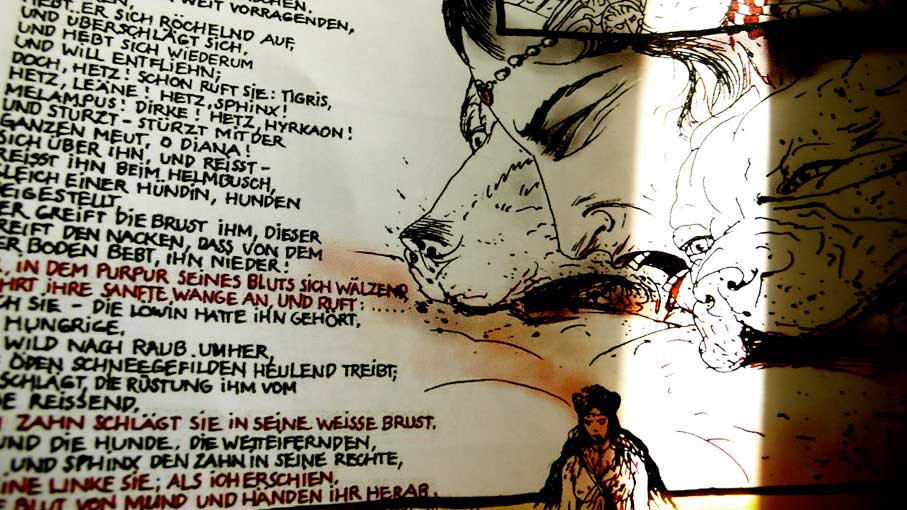 WEIT VORRAGENDEN,
HEBT ER SICH RÖCHELND AUF,
UND ÜBERSCHLÄGT SICH,
UND HEBT SICH WIEDERUM
UND WILL ENTFLIEHN;
DOCH, HETZ! SCHON RUFT SIE: TIGRIS,
HETZ, LEÄNE! HETZ, SPHINX!
MELAMPUS! DIRKE! HETZ, HYRKAON!
UND STÜRZT - STÜRZT MIT DER
GANZEN MEUT, O DIANA!
SICH ÜBER IHN, UND REISST -
REISST IHN BEIM HELMBUSCH,
GLEICH EINER HÜNDIN, HUNDEN
BEIGESTELLT.
ER GREIFT DIE BRUST IHM, DIESER
GREIFT DEN NACKEN, DASS VON DEM
BODEN BEBT, IHN NIEDER!
IN DEM PURPUR SEINES BLUTS SICH WÄLZEND,
IHRE SANFTE WANGE AN, UND RUFT: .....
SIE - DIE LÖWIN HATTE IHN GEHÖRT,
HUNGRIGE,
WILD NACH RAUB UMHER,
ÖDEN SCHNEEGEFILDEN HEULEND TREIBT;
SCHLÄGT, DIE RÜSTUNG IHM VOM
REISSEND,
ZAHN SCHLÄGT SIE IN SEINE WEISSE BRUST.
UND DIE HUNDE, DIE WETTEIFERNDEN,
UND SPHINX DEN ZAHN IN SEINE RECHTE,
LINKE SIE; ALS ICH ERSCHIEN,
BLUT VON MUND UND HÄNDEN IHR HERAB.